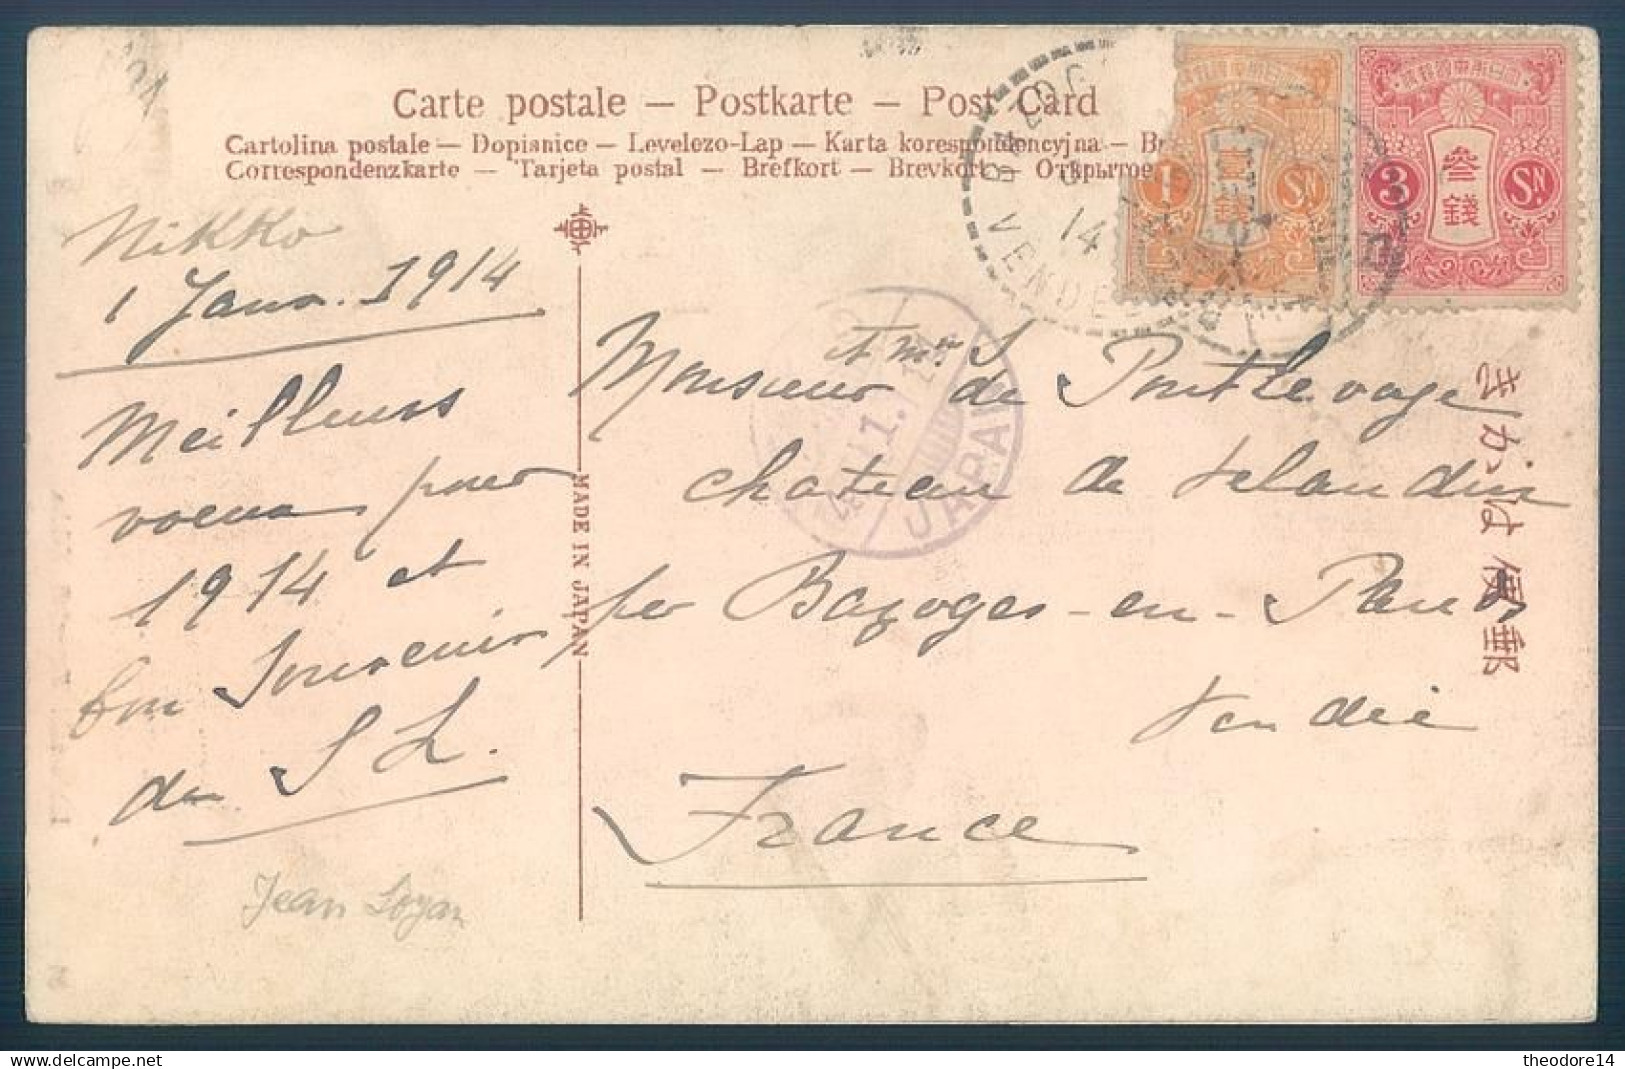 Carte postale — Postkarte — Post Card
Cartolina postale — Dopisnice — Levelezo-Lap — Karta korespondencyjna — Br
Correspondenzkarte — Tarjeta postal — Brefkort — Brevkort — Открытое
Nikko
1 Janv. 1914
Meilleurs
voeux pour
1914 et
bon souvenir
de S L.
Jean
MADE IN JAPAN
et Mme
Monsieur de Pontlevoye
chateau de
par Bazoges-en-Pareds
Vendée
France
きかは便郵
1 SN
壹銭
3 SN
叁銭
14
VENDEE
JAPAN
theodore14